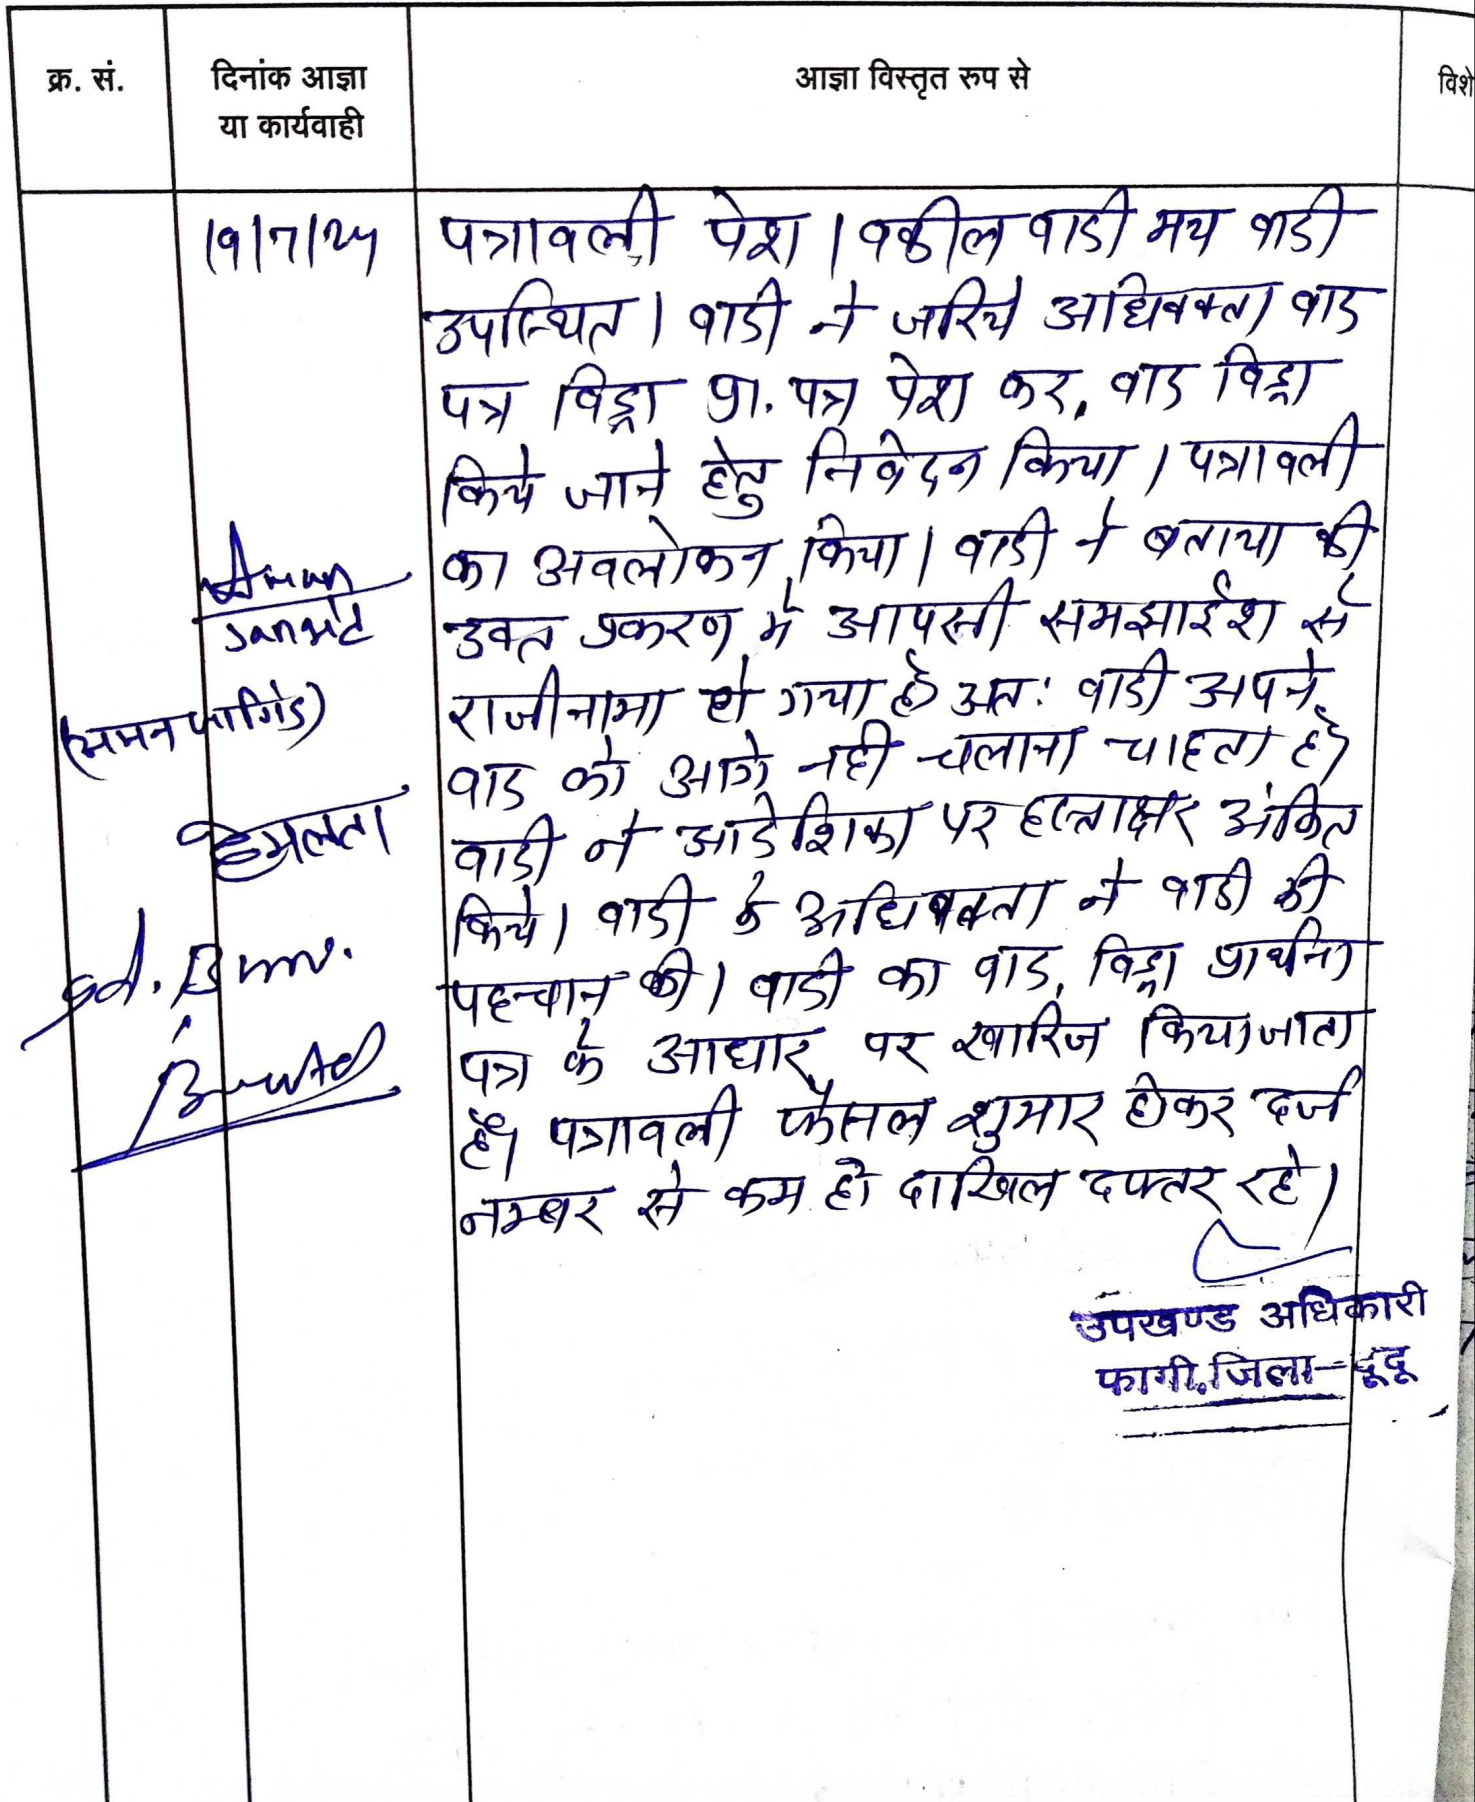 क्र. सं.
दिनांक आज्ञा
या कार्यवाही
आज्ञा विस्तृत रुप से
विशे
पत्रावली पेश। वकील वादी मय वादी
उपस्थित। वादी ने जरिये अधिवक्ता वाद
पत्र विड्रा प्रा. पत्र पेश कर, वाद विड्रा
किये जाने हेतु निवेदन किया। पत्रावली
का अवलोकन किया। वादी ने बताया की
उक्त प्रकरण में आपसी समझाईश से
राजीनामा हो गया है अतः वादी अपने
वाद को आगे नही चलाना चाहता है
वादी ने आदेशिका पर हस्ताक्षर अंकित
किये। वादी के अधिवक्ता ने वादी की
पहचान की। वादी का वाद, विड्रा प्रार्थना
पत्र के आधार पर खारिज किया जाता
है। पत्रावली फैसल शुमार होकर दर्ज
नम्बर से कम हो दाखिल दफ्तर रहे।
हेमलता
उपखण्ड अधिकारी
फागी, जिला-दूदू